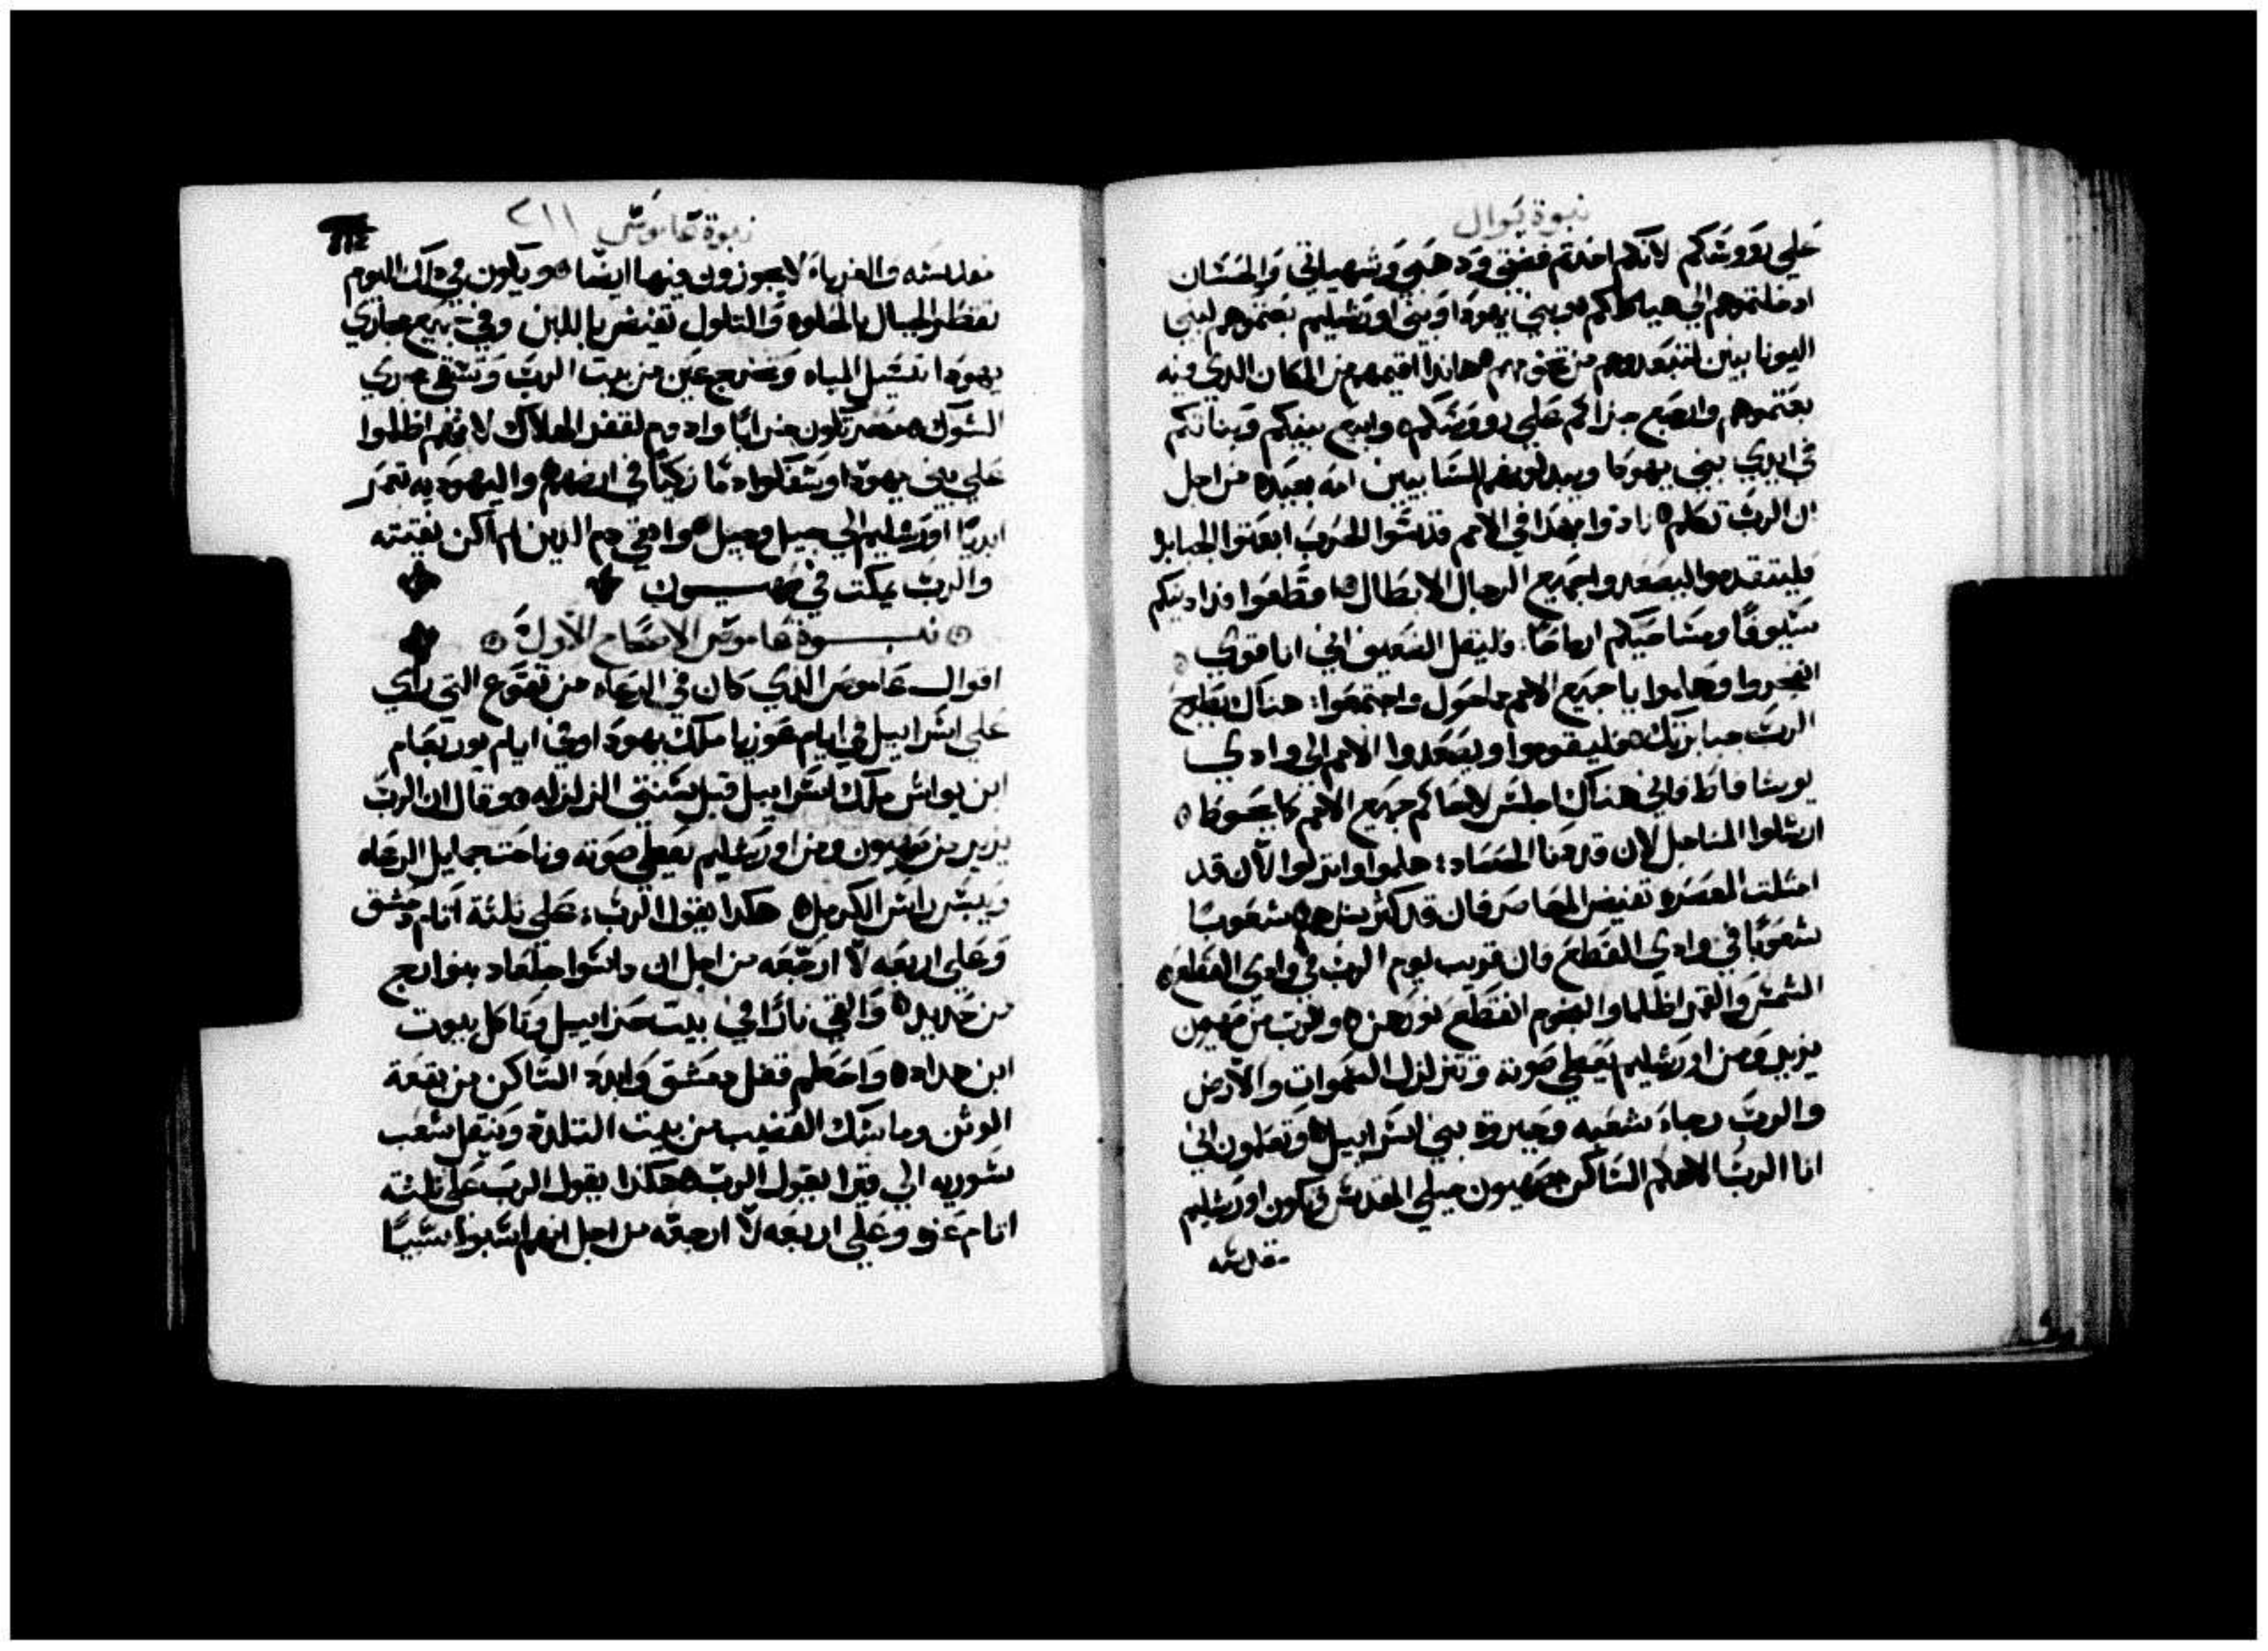 نبوة يوال
علي رووسكم لانكم اخدتم فضتي ودهبي وشهياتي والحسان
ادخلتموهم الي هياكلكم وبني يهودا وبني اورشليم بعتموهم لبني
اليونانيين لتبعدوهم من تخومهم هانذا اقيمهم من المكان الدي فيه
بعتموهم وارجع جزاكم علي رووسكم وابيع بنيكم وبناتكم
في ايدي بني يهودا ويبيعونهم للسابيين امه بعيده من اجل
ان الرب تكلم نادوا بهدا في الامم قدسوا الحرب ابعتوا الجبابره
فليتقدموا ليصعدوا جميع الرجال الابطال اقطعوا فدادينكم
سيوفا ومناجيكم ارماحا وليقل الضعيف اني انا قوي
انفجروا وهلموا يا جميع الامم ما حول واجتمعوا هناك يطرح
الرب جبابرتك فليقوموا ويصعدوا الامم الي وادي
يوشافاط فاني هناك اجلس لاحاكم جميع الامم كما يحوط
ارسلوا المناجل لان قد دنا الحصاد هلموا وانزلوا لان قد
امتلت المعصره تفيض المعاصر فان قد كثر شرهم شعوبا
شعوبا في وادي القطع فان قريب يوم الرب في وادي القطع
الشمس والقمر اظلما والنجوم انقطع نورهن والرب من صهيون
يزير ومن اورشليم يعطي صوته وتتزلزل السموات والارض
والرب رجاء شعبه وجبروة بني اسراييل وتعلمون اني
انا الرب الاهكم الساكن صهيون جبلي المقدس وتكون اورشليم
مقدسه
نبوة عاموس ٢١١
مقدسه والغرباء لا يجوزون فيها ايضا ويكون في دلك اليوم
تقطر الجبال بالحلاوه والتلول تفيض باللبن وفي جميع مجاري
يهودا تسيل المياه وتخرج عين من بيت الرب وتسقي مجري
الشوك مصر تكون خرابا وادوم لقفر الهلاك لانهم اظلموا
علي بني يهودا وسفكوا دما زكيا في ارضهم واليهوديه تعمر
ابديا اورشليم الي جيل وجيل وانقي دم الدين لم اكن نقيته
والرب يمكت في صهيون
نبوة عاموس الاصحاح الاول
اقوال عاموس الذي كان في الرعاه من تقوع التي راي
علي اسراييل في ايام عوزيا ملك يهودا وفي ايام يوربعام
ابن يواش ملك اسراييل قبل سنتي الزلزله وقال ان الرب
يزير من صهيون ومن اورشليم يعطي صوته وناحت جمايل الرعاه
ويبس راس الكرمل هكدا يقول الرب علي ثلثة اتام دمشق
وعلي اربعه لا ارجعه من اجل ان داسوا جلعاد بنوارج
من حديد والقي نارا في بيت حزاييل وتاكل بيوت
ابن هداد واحطم قفل دمشق وابدد الساكن من بقعة
الوثن وماسك القضيب من بيت التلذة وينتقل شعب
سوريه الي قيرا يقول الرب هكذا يقول الرب علي ثلثه
اتام غزه وعلي اربعه لا ارجعه من اجل انهم سبوا سبيا